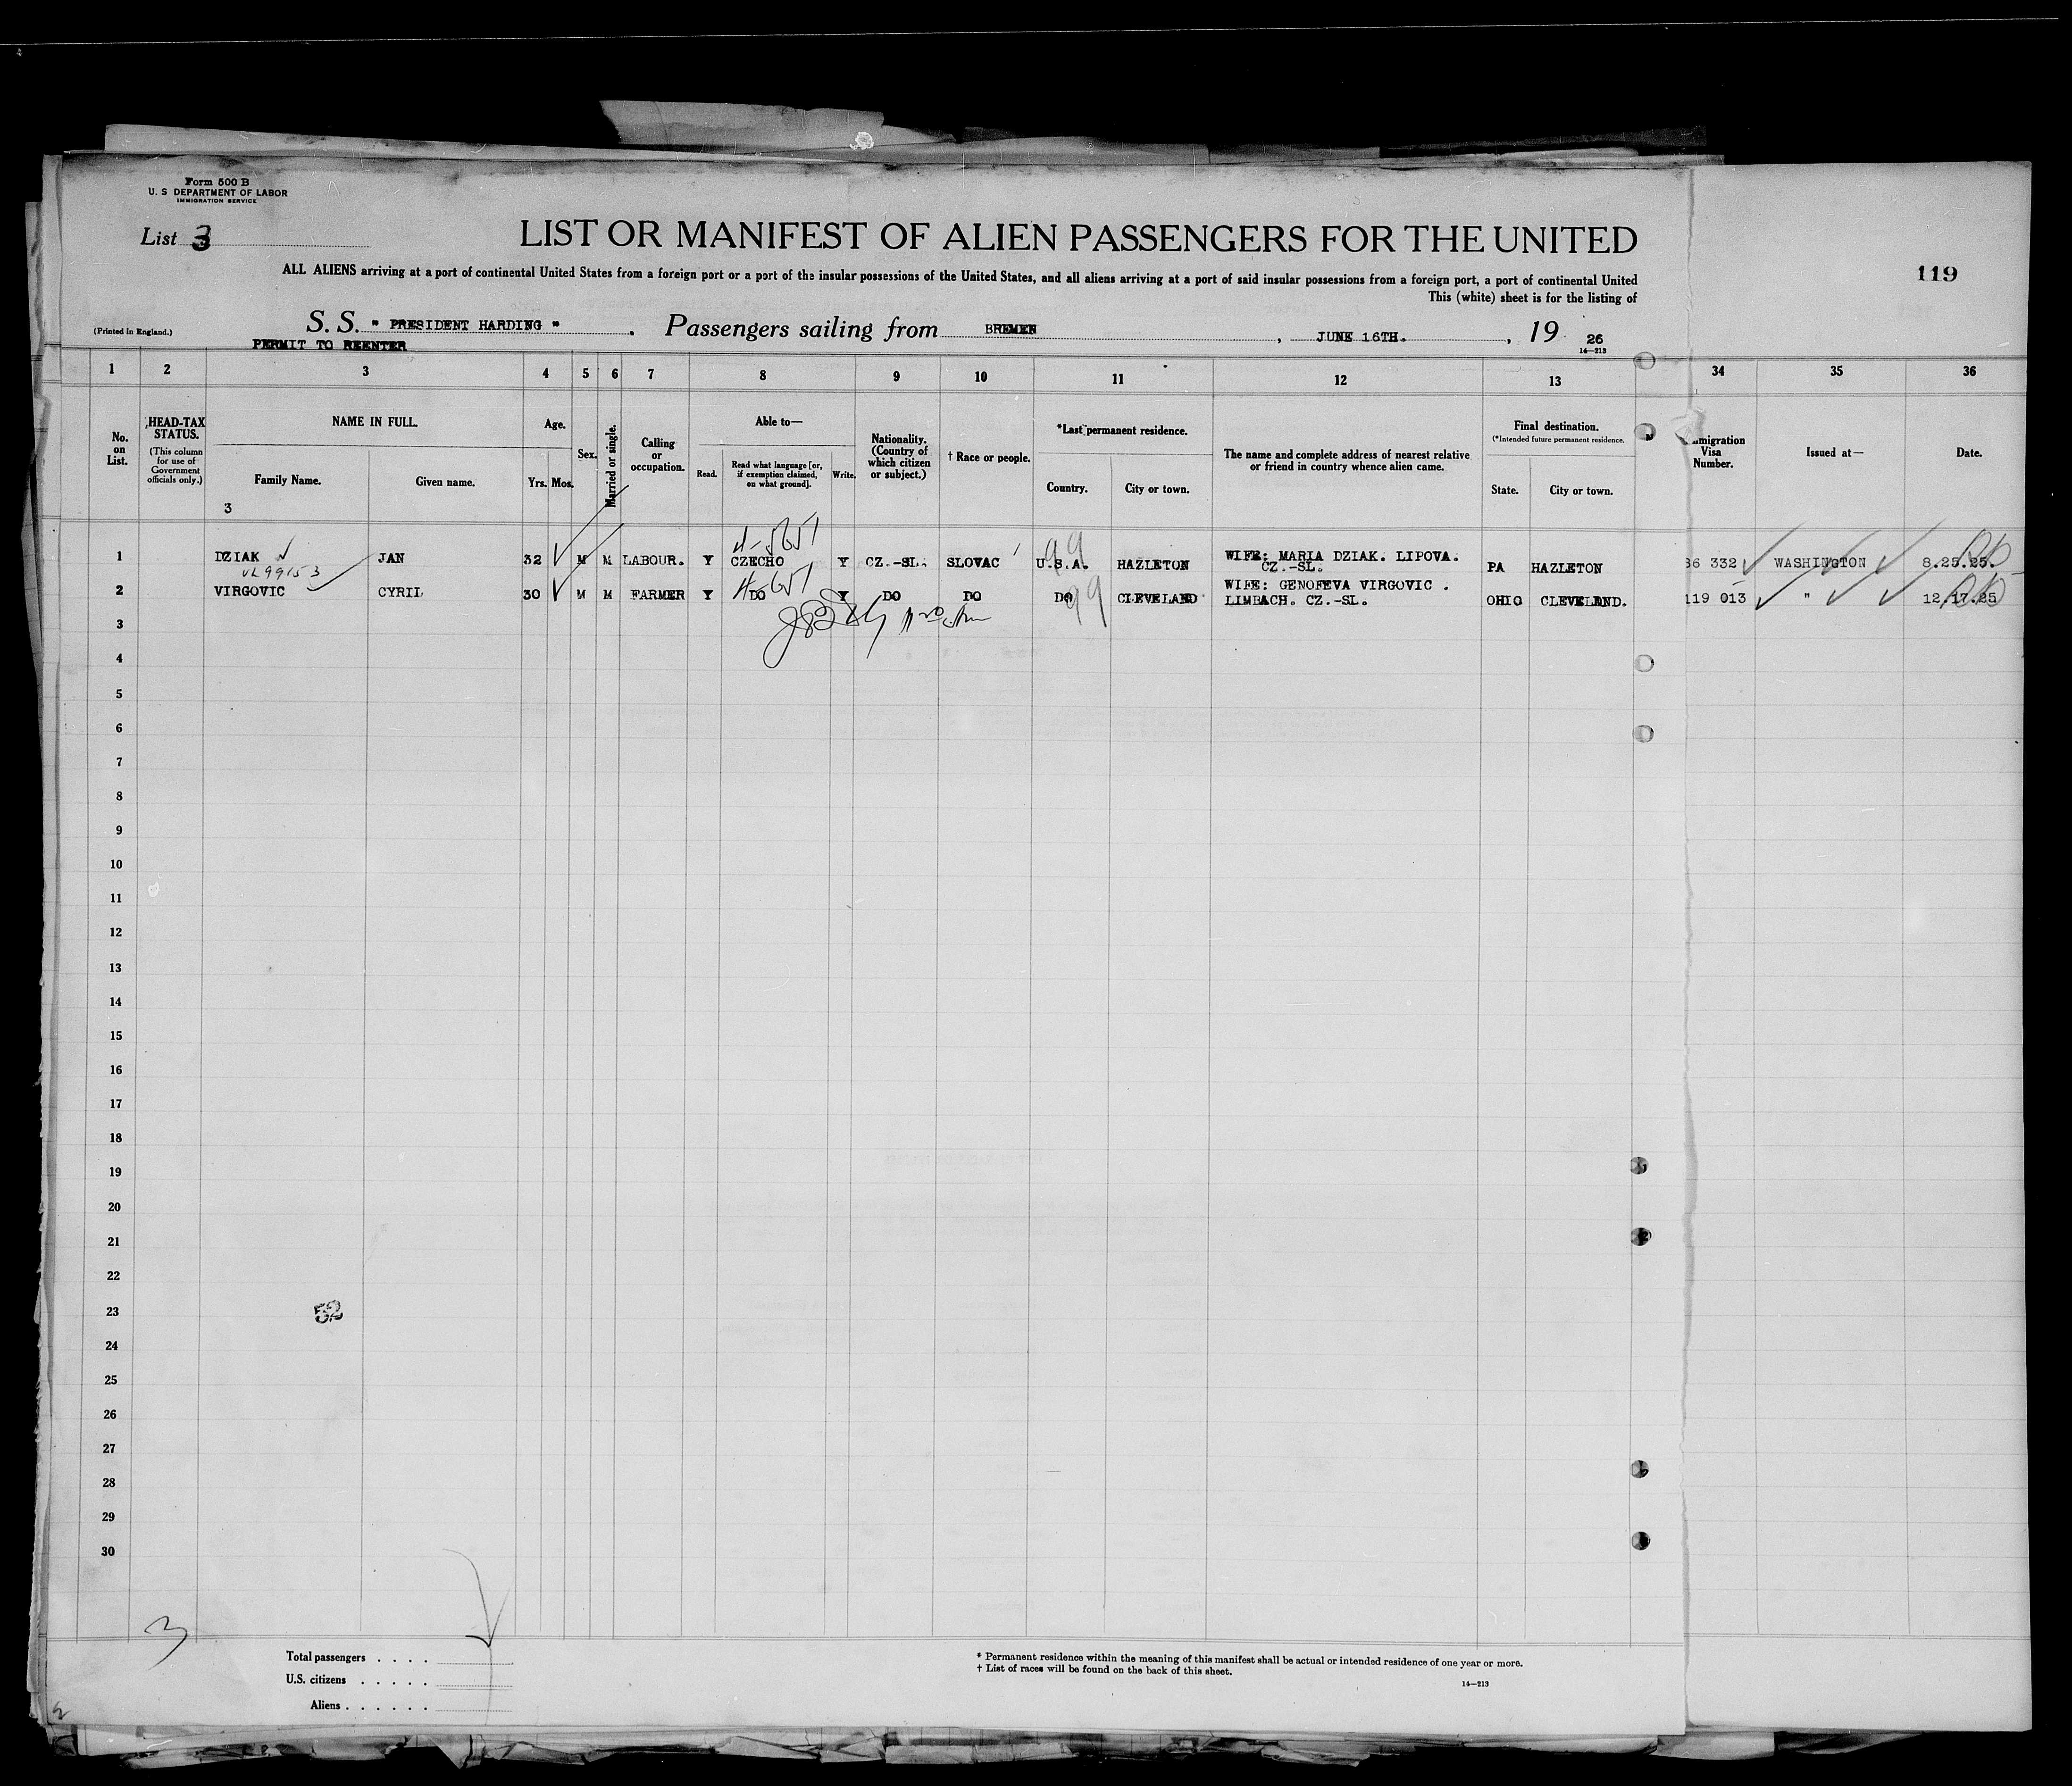 Form 500 B
U. S DEPARTMENT OF LABOR
IMMIGRATION SERVICE
List 3
LIST OR MANIFEST OF ALIEN PASSENGERS FOR THE UNITED
119
ALL ALIENS arriving at a port of continental United States from a foreign port or a port of the insular possessions of the United States, and all aliens arriving at a port of said insular possessions from a foreign port, a port of continental United
This (white) sheet is for the listing of
(Printed in England.)
S. S. " PRESIDENT HARDING " . Passengers sailing from BREMEN , JUNE 16TH. , 19 26
14—213
PERMIT TO REENTER
1 2 3 4 5 6 7 8 9 10 11 12 13 34 35 36
No. on List.
HEAD-TAX STATUS.
(This column for use of Government officials only.)
NAME IN FULL.
Family Name. Given name.
3
Age.
Yrs. Mos.
Sex.
Married or single.
Calling or occupation.
Able to—
Read. Read what language [or, if exemption claimed, on what ground]. Write.
Nationality. (Country of which citizen or subject.)
† Race or people.
*Last permanent residence.
Country. City or town.
The name and complete address of nearest relative or friend in country whence alien came.
Final destination.
(*Intended future permanent residence.
State. City or town.
Visa Number.
Issued at—
Date.
4-5651
99
1 DZIAK JAN 32 M M LABOUR. Y CZECHO Y CZ.-SL. SLOVAC U.S.A. HAZLETON WIFE: MARIA DZIAK. LIPOVA. CZ.-SL. PA HAZLETON 36 332 WASHINGTON 8.25.25.
VL 99153
4-651
99
2 VIRGOVIC CYRIL 30 M M FARMER Y DO Y DO DO DO CLEVELAND WIFE: GENOFEVA VIRGOVIC . LIMBACH. CZ.-SL. OHIO CLEVELAND. 119 013 " 12.17.25
3
4
5
6
7
8
9
10
11
12
13
14
15
16
17
18
19
20
21
22
23
52
24
25
26
27
28
29
30
3
Total passengers . . . .
U.S. citizens . . . . .
Aliens . . . . . .
* Permanent residence within the meaning of this manifest shall be actual or intended residence of one year or more.
† List of races will be found on the back of this sheet.
14—213
2